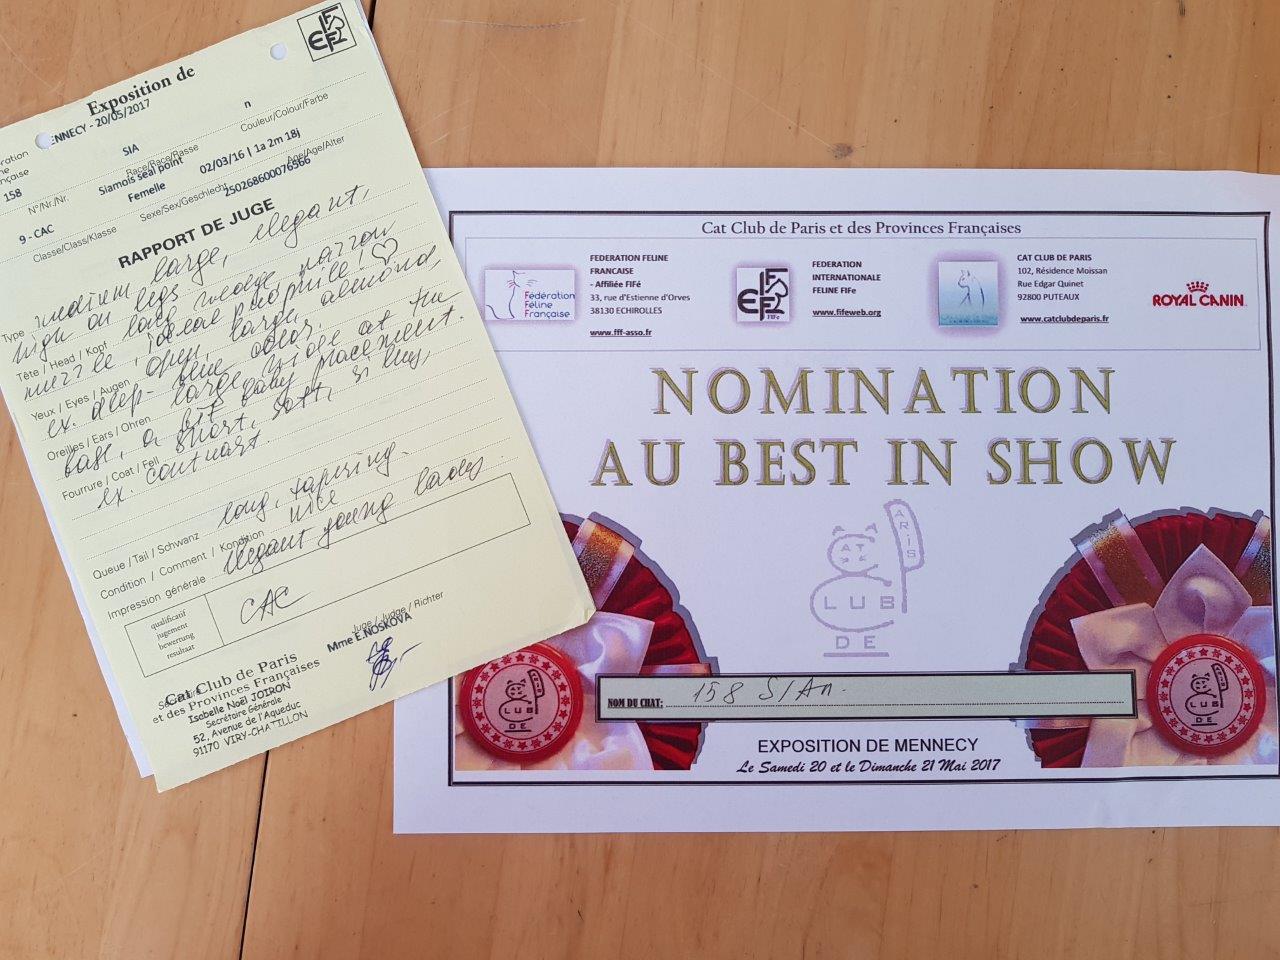 Exposition de
FIFe
ENNECY - 20/05/2017
SIA
n
Race/Race/Rasse
Couleur/Colour/Farbe
158
Siamois seal point
02/03/16 | 1a 2m 18j
N°/Nr./Nr.
Femelle
Age/Age/Alter
Sexe/Sex/Geschlecht
250268600076566
9 - CAC
Classe/Class/Klasse
RAPPORT DE JUGE
Type medium large, elegant,
high on legs
Tête / Head / Kopf long wedge, narrow
muzzle, ideal profile! ♡
Yeux / Eyes / Augen open, large, almond,
ex. deep-blue color.
Oreilles / Ears / Ohren large, wide at the
base, a bit easy placement.
Fourrure / Coat / Fell short, soft, silky,
ex. contrast.
Queue / Tail / Schwanz long, tapering.
Condition / Comment / Kondition nice
Impression générale elegant young lady.
qualificatif
jugement
bewertung
resultaat
CAC
Juge / Judge / Richter
Mme E.NOSKOVA
Cat Club de Paris
et des Provinces Françaises
Isabelle Noël JOIRON
Secrétaire Générale
52, Avenue de l'Aqueduc
91170 VIRY-CHATILLON
Cat Club de Paris et des Provinces Françaises
Fédération
Féline
Française
FEDERATION FELINE
FRANCAISE
- Affiliée FIFé
33, rue d'Estienne d'Orves
38130 ECHIROLLES
www.fff-asso.fr
FIFe
FEDERATION
INTERNATIONALE
FELINE FIFe
www.fifeweb.org
CAT CLUB DE PARIS
102, Résidence Moissan
Rue Edgar Quinet
92800 PUTEAUX
www.catclubdeparis.fr
ROYAL CANIN
NOMINATION
AU BEST IN SHOW
CAT
CLUB
DE
PARIS
NOM DU CHAT: 158 SIAn.
EXPOSITION DE MENNECY
Le Samedi 20 et le Dimanche 21 Mai 2017